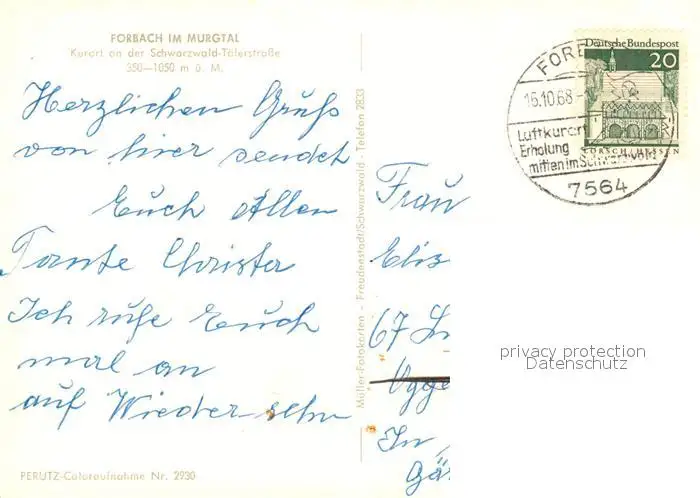 FORBACH IM MURGTAL
Kurort an der Schwarzwald-Tälerstraße
350—1050 m ü. M.
Herzlichen Gruß
von hier sendet
Euch Allen
Tante Christa
Ich rufe Euch
mal an
auf Wiedersehn
PERUTZ-Coloraufnahme Nr. 2930
Müller-Fotokarten - Freudenstadt/Schwarzwald - Telefon 2833
Deutsche Bundespost
20
LORSCH/HESSEN
FORB
15.10.68-
Luftkurort
Erholung
mitten im Schwarzwald
7564
Frau
Elis
67 Lu
Ogge
In
Gä
privacy protection
Datenschutz